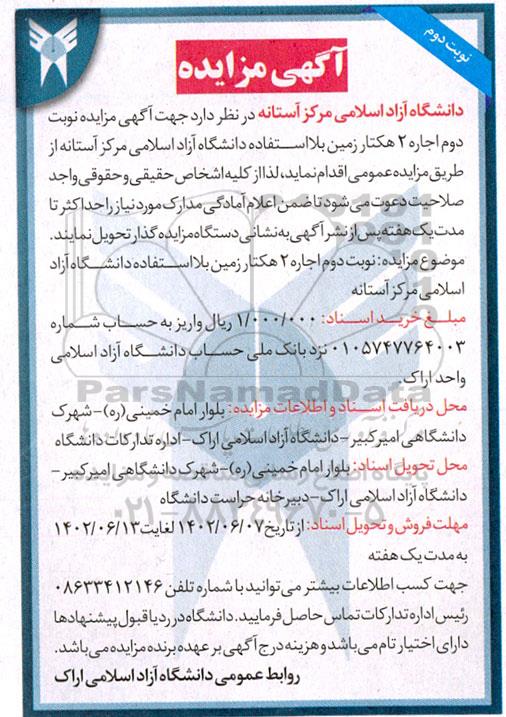 نوبت دوم
آگهی مزایده
دانشگاه آزاد اسلامی مرکز آستانه در نظر دارد جهت آگهی مزایده نوبت
دوم اجاره ۲ هکتار زمین بلااستفاده دانشگاه آزاد اسلامی مرکز آستانه از
طریق مزایده عمومی اقدام نماید، لذا از کلیه اشخاص حقیقی و حقوقی واجد
صلاحیت دعوت می شود تا ضمن اعلام آمادگی مدارک مورد نیاز را حداکثر تا
مدت یک هفته پس از نشر آگهی به نشانی دستگاه مزایده گذار تحویل نمایند.
موضوع مزایده: نوبت دوم اجاره ۲ هکتار زمین بلااستفاده دانشگاه آزاد
اسلامی مرکز آستانه
مبلغ خرید اسناد: ۱/۰۰۰/۰۰۰ ریال واریز به حساب شماره
۰۱۰۵۷۴۷۷۶۴۰۰۳ نزد بانک ملی حساب دانشگاه آزاد اسلامی
واحد اراک.
ParsNamadData
محل دریافت اسناد و اطلاعات مزایده: بلوار امام خمینی(ره)-شهرک
دانشگاهی امیرکبیر-دانشگاه آزاد اسلامی اراک-اداره تدارکات دانشگاه
محل تحویل اسناد: بلوار امام خمینی(ره)-شهرک دانشگاهی امیرکبیر-
دانشگاه آزاد اسلامی اراک-دبیرخانه حراست دانشگاه
مهلت فروش و تحویل اسناد: از تاریخ ۱۴۰۲/۰۶/۰۷ لغایت ۱۴۰۲/۰۶/۱۳
به مدت یک هفته
جهت کسب اطلاعات بیشتر می توانید با شماره تلفن ۰۸۶۳۳۴۱۲۱۴۶
رئیس اداره تدارکات تماس حاصل فرمایید. دانشگاه در رد یا قبول پیشنهادها
دارای اختیار تام می باشد و هزینه درج آگهی بر عهده برنده مزایده می باشد.
روابط عمومی دانشگاه آزاد اسلامی اراک